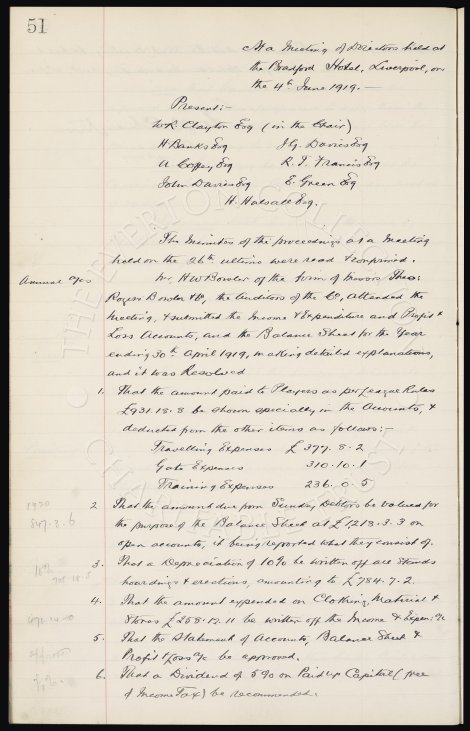 51
At a Meeting of Directors held at
the Bradford Hotel, Liverpool, on
the 4th June 1919.—
Present:-
W.R. Clayton Esq (in the Chair)
H Banks Esq J.G. Davies Esq
A Coffey Esq R.T. Francis Esq
John Davies Esq E. Green Esq
H. Halsall Esq.
The Minutes of the proceedings at a Meeting
held on the 26th ultimo were read & confirmed.
Annual a/cs
Mr. H W Bowler of the firm of Messrs Theo:
Rogers Bowler & Co, the Auditors of the Co, attended the
Meeting, & submitted the Income & Expenditure and Profit &
Loss Accounts, and the Balance Sheet for the Year
ending 30th April 1919, making detailed explanations,
and it was Resolved
1. That the amount paid to Players as per League Rules
£931.18.8 be shown specially in the Accounts, &
deducted from the other items as follows:-
Travelling Expenses £ 377.8.2
Gate Expenses 310.10.1
Training Expenses 236.0.5
1920
847.3.6
2 That the amount due from Sundry Debtors be valued for
the purpose of the Balance Sheet at £1213.3.3 on
open accounts, it being reported what they consist of.
3. That a Depreciation of 10% be written off all Stands
hoardings & erections, amounting to £784.7.2.
4. That the amount expended on Clothing, Material &
Stores £258.17.11 be written off the Income & Expen: a/c
5. That the Statement of Accounts, Balance Sheet &
Profit & Loss a/c be approved.
6. That a Dividend of 5% on Paid up Capital (free
of Income Tax) be recommended.
THE EVERTON COLLECTION